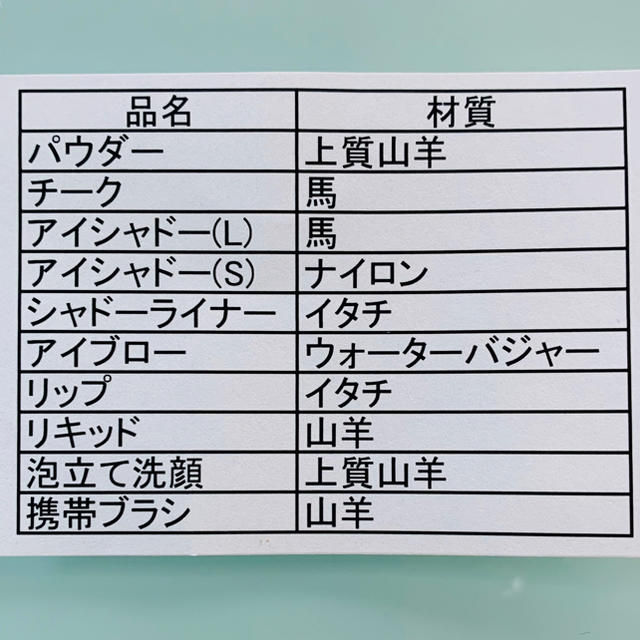 品名 材質
パウダー 上質山羊
チーク 馬
アイシャドー(L) 馬
アイシャドー(S) ナイロン
シャドーライナー イタチ
アイブロー ウォーターバジャー
リップ イタチ
リキッド 山羊
泡立て洗顔 上質山羊
携帯ブラシ 山羊